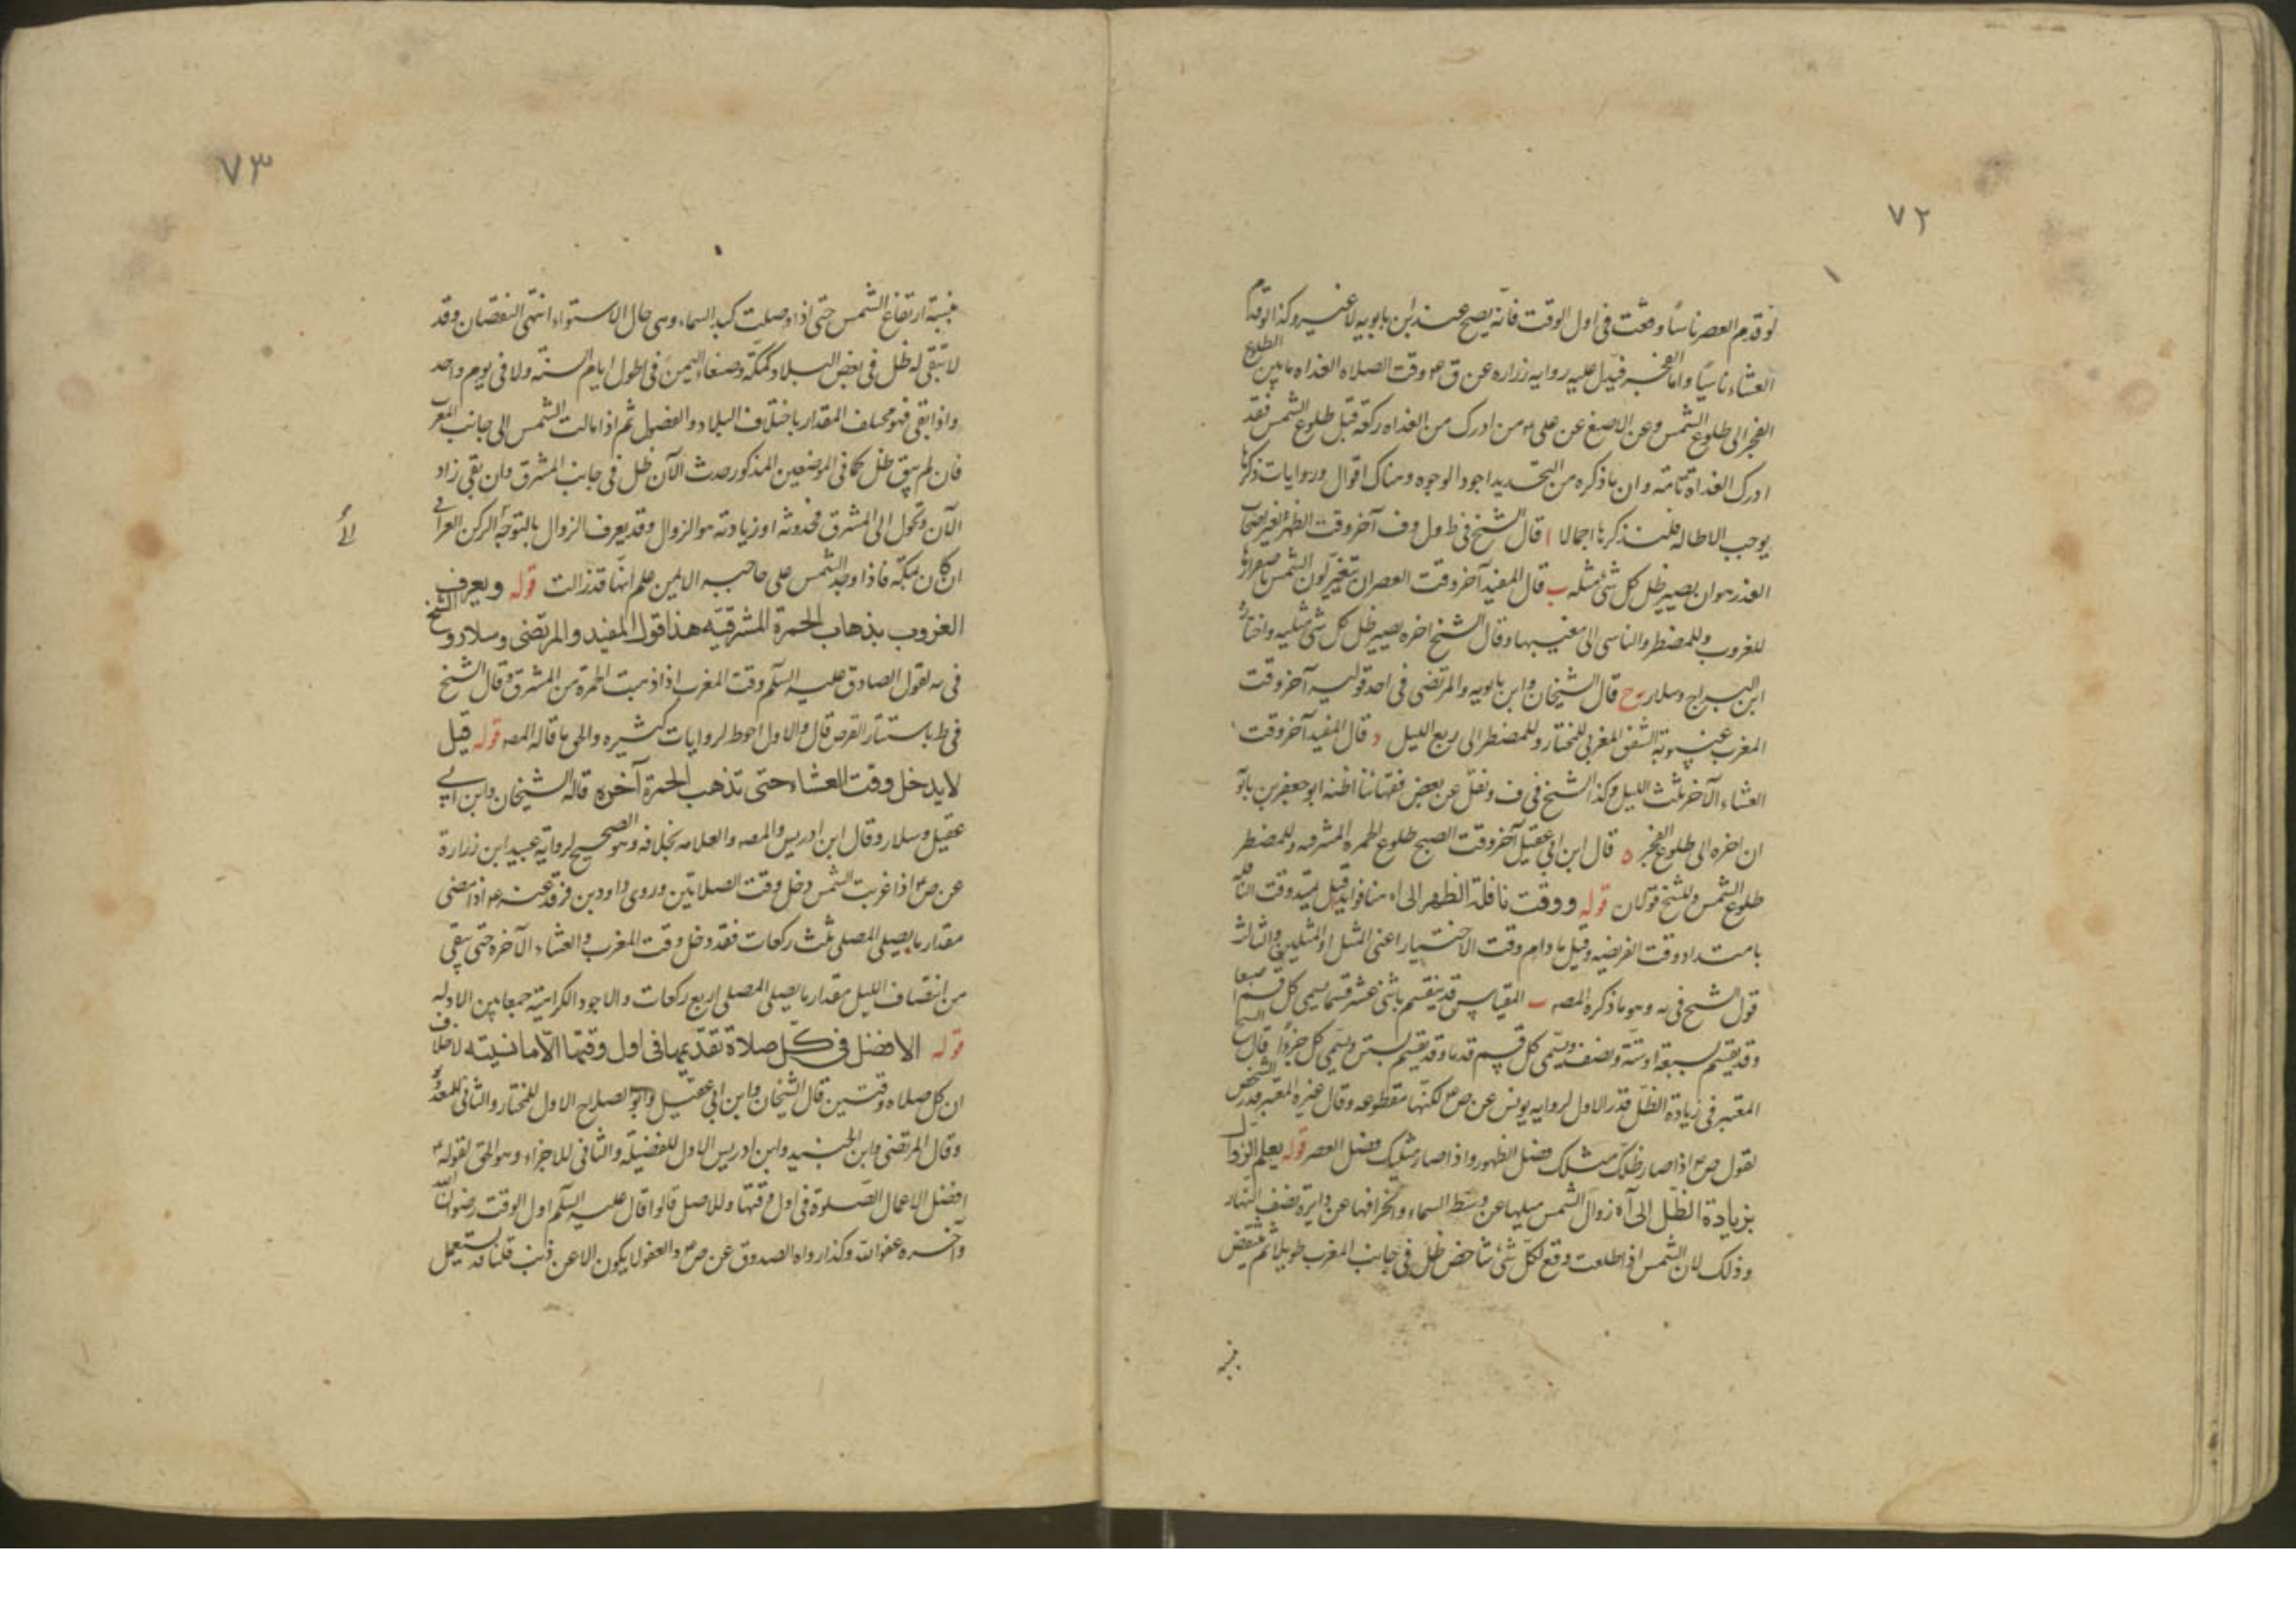 ٧٢
لو قدم العصر ناسيًا وقعت فى اول الوقت فانه يصح عند ابن بابويه لا غير وكذا لو قدم
العشاء ناسيًا واما الفجر فيدل عليه روايه زراره عن ق ع وقت الصلاه الغداه ما بين الطلوع
الفجر الى طلوع الشمس وعن الاصبغ عن على ع من ادرك من الغداه ركعة قبل طلوع الشمس فقد
ادرك الغداة تامة وان ما ذكره من التحديد اجود الوجوه وهناك اقوال وروايات ذكرها
يوجب الاطاله فلنذكرها اجمالا ا قال الشيخ فى ط ول وف آخر وقت الظهر لغير اصحاب
العذر هو ان يصير ظل كل شئ مثله ب قال المفيد آخر وقت العصر ان يتغير لون الشمس باصفرارها
للغروب وللمضطر والناسى الى مغيبها وقال الشيخ اخره يصير ظل كل شئ مثليه واختاره
ابن البراج وسلار ج قال الشيخان وابن بابويه والمرتضى فى احد قوليه آخر وقت
المغرب غيبوبة الشفق المغربى للمختار وللمضطر الى ربع الليل د قال المفيد آخر وقت
العشاء الآخر ثلث الليل وكذا الشيخ فى ف ونقل عن بعض فقهائنا اظنه ابو جعفر بن بابو
ان اخره الى طلوع الفجر ه قال ابن ابى عقيل آخر وقت الصبح طلوع الحمره المشرقيه وللمضطر
طلوع الشمس وللشيخ قولان قوله ووقت نافلة الظهر الى اه هنا فوايد قيل يمتد وقت النافلة
بامتداد وقت الفريضه وقيل ما دام وقت الاختيار اعنى المثل او المثلين والثالث
قول الشيخ فى يه وهو ما ذكره المصه ب المقياس قد ينقسم باثنى عشر قسما يسمى كل قسم اصبعا
وقد يقسم بسبعة او ستة ونصف ويسمى كل قسم قدما وقد يقسم بستين ويسمى كل جزوا قال الشيخ
المعتبر فى زيادة الظل قدر الاول لروايه يونس عن ص ع لكنها مقطوعه وقال غيره المعتبر قدر الشخص
لقول ص ع اذا صار ظلك مثلك فصل الظهر واذا صار مثليك فصل العصر قوله يعلم الزوال
بزيادة الظل الى آه زوال الشمس ميلها عن وسط السماء وانحرافها عن دايرة نصف النهار
وذلك لان الشمس اذا طلعت وقع لكل شئ شاخص ظل فى جانب المغرب طويلا ثم ينتقض
بنسبة
٧٣
بنسبة ارتفاع الشمس حتى اذا وصلت كبد السماء وهى حال الاستواء انتهى النقصان وقد
لا يبقى له ظل فى بعض البلاد كمكة وصنعاء اليمن فى اطول ايام السنة ولا فى يوم واحد
واذا بقى فهو مختلف المقدار باختلاف البلاد والفصول ثم اذا مالت الشمس الى جانب المغرب
فان لم يبق ظل كما فى الموضعين المذكور حدث الآن ظل فى جانب المشرق وان بقى زاد
الآن وتحول الى المشرق فحدوثه او زيادته هو الزوال وقد يعرف الزوال بالتوجه الركن العراقى
ان كان بمكة فاذا وجد الشمس على حاجبه الايمن علم انها قد زالت قوله ويعرف
الغروب بذهاب الحمرة المشرقيه هذا قول المفيد والمرتضى وسلار والشيخ
فى يه لقول الصادق عليه السلم وقت المغرب اذا ذهبت الحمرة من المشرق وقال الشيخ
فى ط باستتار القرص قال والاول احوط لروايات كثيره والحق ما قاله المصه قوله قيل
لا يدخل وقت العشاء حتى تذهب الحمرة آخره قاله الشيخان وابن ابى
عقيل وسلار وقال ابن ادريس والمصه والعلامه بخلافه وهو الصحيح لرواية عبيد ابن زرارة
عن ص ع اذا غربت الشمس دخل وقت الصلاتين وروى داود بن فرقد عنه ع اذا مضى
مقدار ما يصلى المصلى ثلث ركعات فقد دخل وقت المغرب والعشاء الآخره حتى يبقى
من انتصاف الليل مقدار ما يصلى المصلى اربع ركعات والاجود الكراهية جمعا بين الادله
قوله الافضل فى كل صلاة تقديمها فى اول وقتها الا ما نسيته لا خلاف
ان لكل صلاه وقتين قال الشيخان وابن ابى عقيل وابو الصلاح الاول للمختار والثانى للمعذور
وقال المرتضى وابن الجنيد وابن ادريس الاول للفضيلة والثانى للاجزاء وهو الحق لقوله ع
افضل الاعمال الصلوة فى اول وقتها وللاصل قالوا قال عليه السلم اول الوقت رضوان الله
وآخره عفو الله وكذا رواه الصدوق عن ص ع والعفو لا يكون الا عن ذنب قلنا قد يستعمل